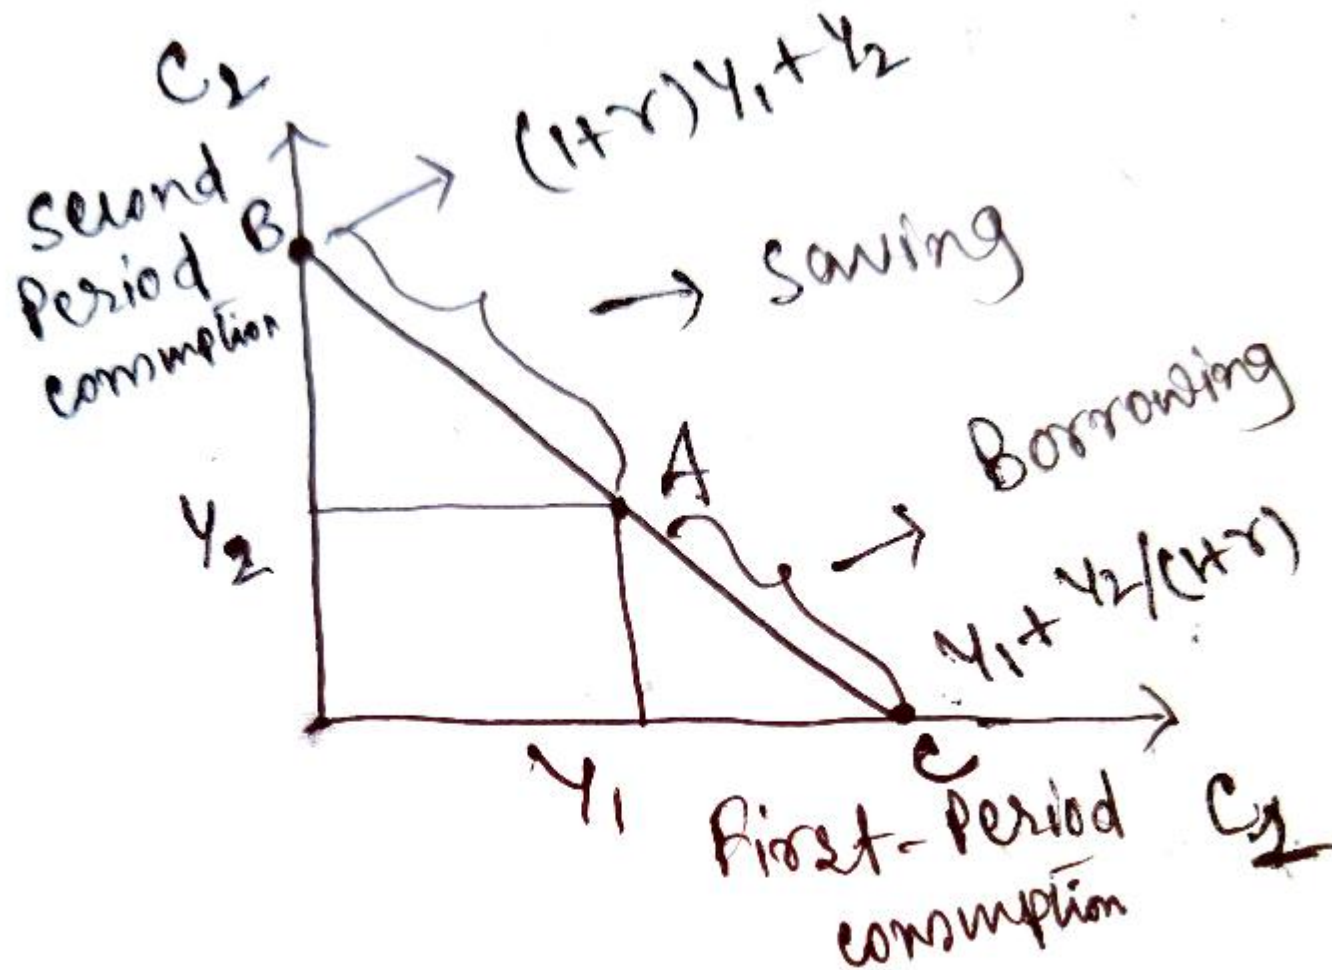 C2
(1+r)Y1+Y2
Second
Period
consumption
B
→ Saving
A
→ Borrowing
Y2
Y1+Y2/(1+r)
Y1
C
First-Period
consumption
C1